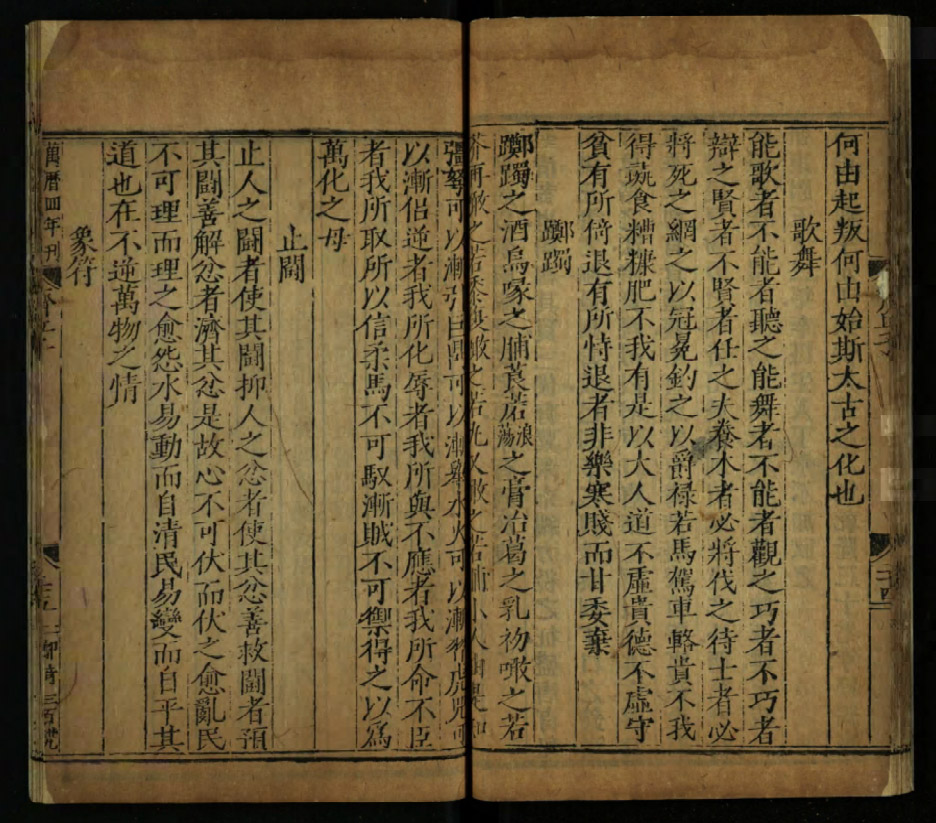 何由起叛何由始斯太古之化也
歌舞
能歌者不能者聽之能舞者不能者觀之巧者不巧者
辯之賢者不賢者任之夫養木者必將伐之待士者必
將死之網之以冠冕釣之以爵祿若馬駕車輅貴不我
得彘食糟糠肥不我有是以大人道不虛貴德不虛守
貧有所倚退有所恃退者非樂寒賤而甘委棄
躑躅
躑躅之酒烏喙之脯莨若浪蕩之膏冶葛之乳初噉之若
芥再噉之若黍復噉之若丸又噉之若脯小人由是知
彊弩可以漸引巨鼎可以漸舉水火可以漸狎虎兕可
以漸侣逆者我所化辱者我所與不應者我所命不臣
者我所取所以信柔馬不可馭漸賊不可禦得之以爲
萬化之母
止鬪
止人之鬪者使其鬪抑人之忿者使其忿善救鬪者預
其鬪善解忿者濟其忿是故心不可伏而伏之愈亂民
不可理而理之愈怨水易動而自清民易變而自平其
道也在不逆萬物之情
象符
萬曆四年刊